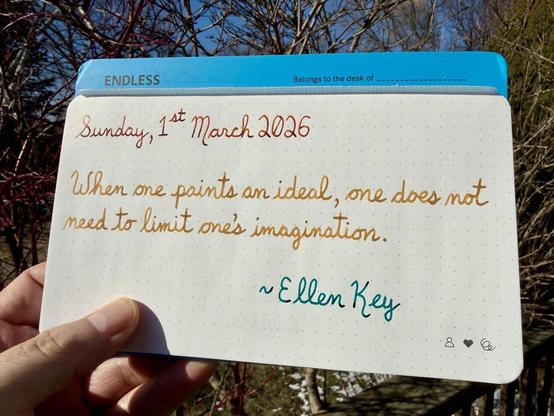 ENDLESS
Belongs to the desk of
Sunday, 1st March 2026
When one paints an ideal, one does not
need to limit one's imagination.
~Ellen Key